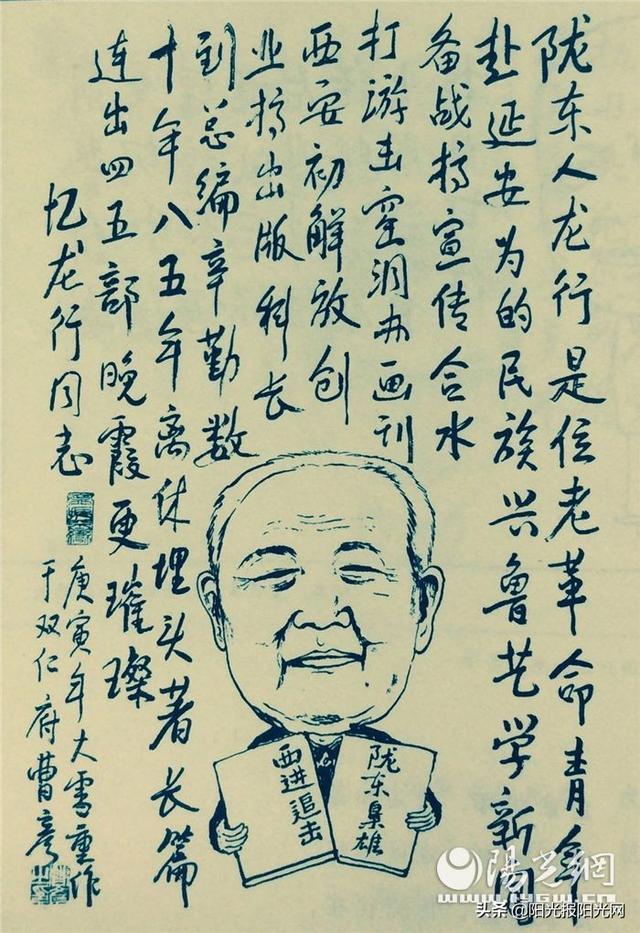 陇东人龙行是位老革命青年
赴延安为的民族兴鲁艺学新闻
备战搞宣传合水
打游击窑洞办画刊
西安初解放创
业搞出版科长
到总编辛勤数
十年八五年离休埋头著长篇
连出四五部晚霞更璀璨
忆龙行同志
庚寅年大雪重作
于双仁府曹彦
陇东枭雄
西进追击
阳光网
www.iygw.cn
头条 @阳光报阳光网